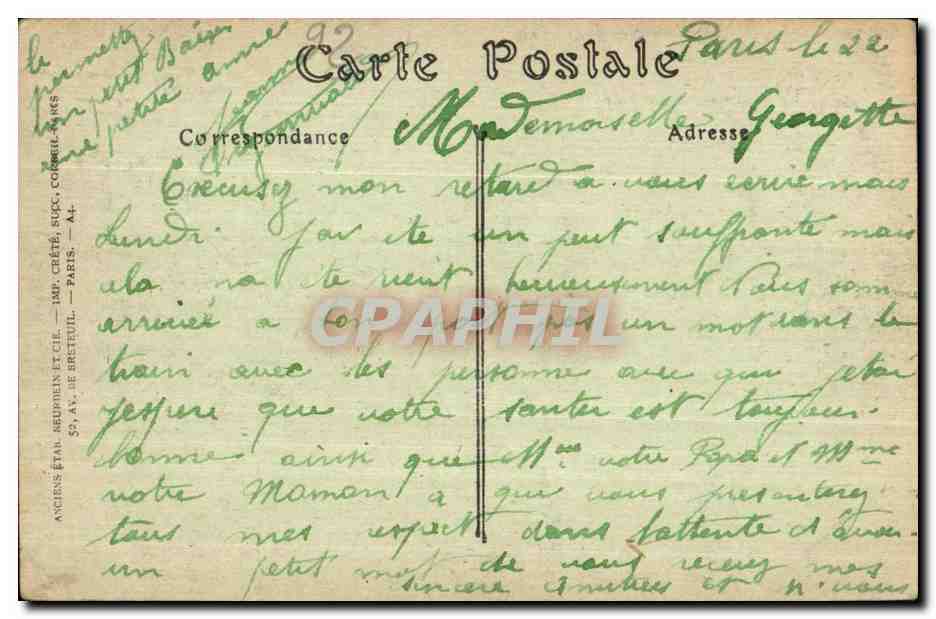 92
Carte Postale
Paris le 22
Correspondance
Adresse
Mademoiselle Georgette
Excusez mon retard a vous ecrire mais
Lundi j'ai ete un peut souffrante mais
cela na ete rient heureusement Nous somme
arrivée a bon port pas un mot dans le
train avec les personne avec qui jetai
jespere que votre santer est toujour
bonne ainsi que Mr votre Papa et Mme
votre Maman a qui vous presenterez
tous mes respect dans lattente d'avoir
un petit mot de vous recevez mes
sincere amitiees et si vous
le permettez
un petit Baiser
une petite amie
CPAPHIL
ANCIENS ÉTAB. NEURDEIN ET CIE. — IMP. CRÉTÉ, SUCC, CORBEIL-PARIS
52, AV. DE BRETEUIL. — PARIS. — A4.